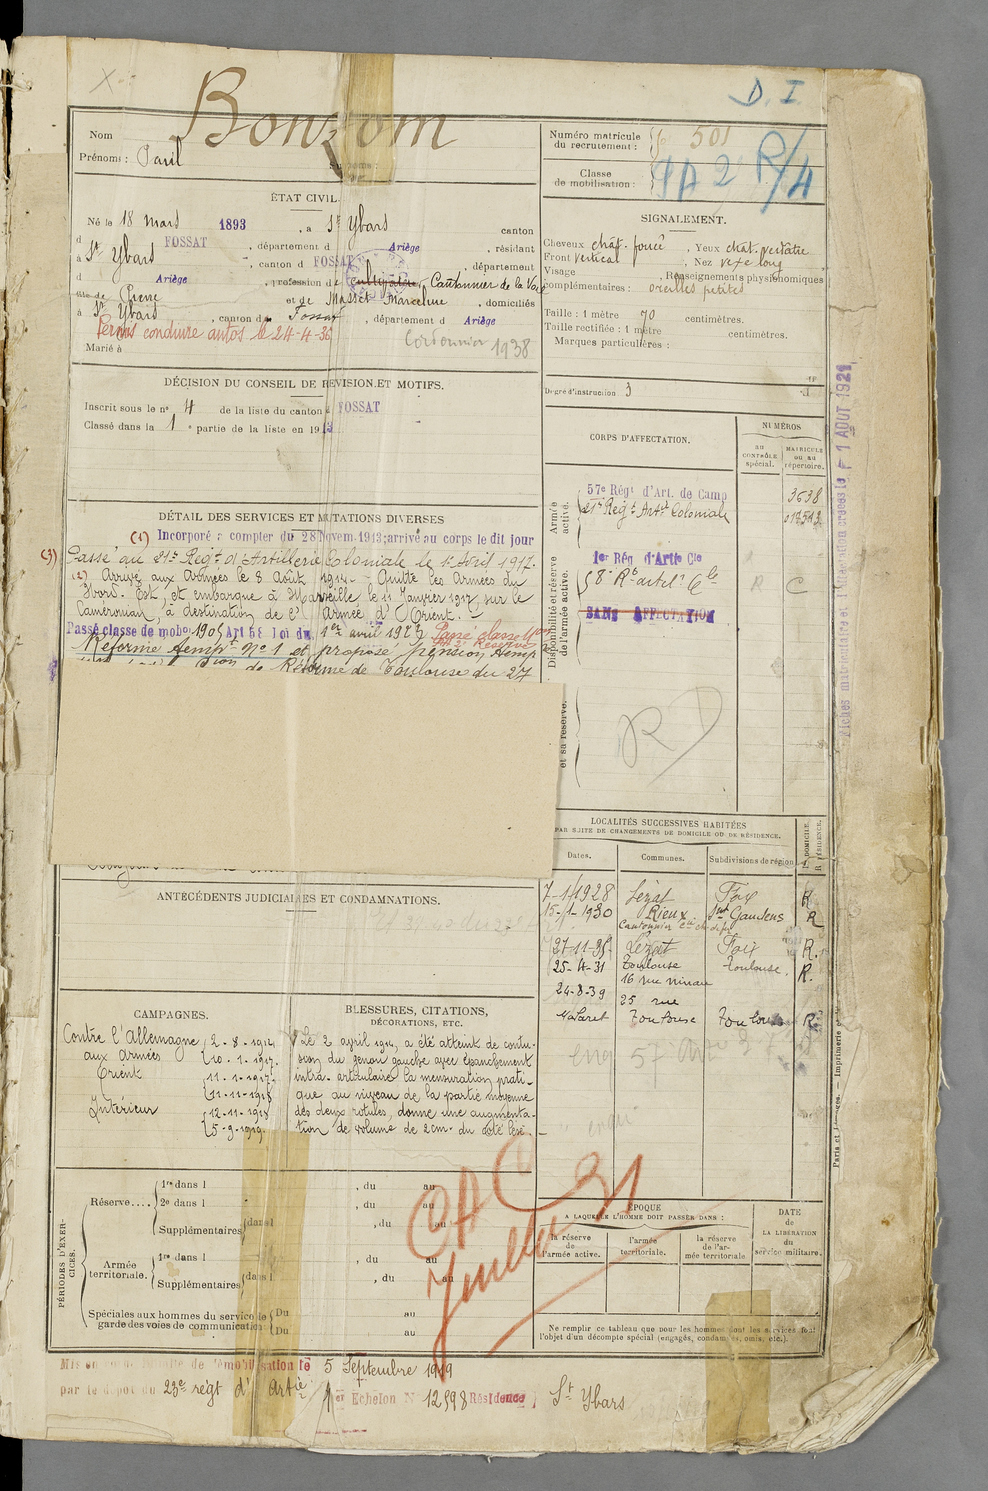 Bonzom
D. I
Nom
Prénoms : Paul
Numéro matricule
du recrutement : 501
Classe
de mobilisation :
R/4
ÉTAT CIVIL.
Né le 18 mars 1893, à St Ybars canton
d FOSSAT, département d Ariège, résidant
à St Ybars, canton d FOSSAT, département
d Ariège, profession de cultivateur, Cantonnier de la Voie
fils de Pierre et de Masset Marceline, domiciliés
à St Ybars, canton de Fossat, département d Ariège
Permis conduire autos le 24-4-36
Marié à
Cordonnier 1938
SIGNALEMENT.
Cheveux chât. foncé, Yeux chât. verdâtre
Front vertical, Nez vexe long
Visage , Renseignements physionomiques
complémentaires : oreilles petites
Taille : 1 mètre 70 centimètres.
Taille rectifiée : 1 mètre centimètres.
Marques particulières :
Degré d'instruction 3
DÉCISION DU CONSEIL DE REVISION ET MOTIFS.
Inscrit sous le no 4 de la liste du canton d FOSSAT
Classé dans la 1e partie de la liste en 1913
DÉTAIL DES SERVICES ET MUTATIONS DIVERSES
(1) Incorporé à compter du 28 Novem. 1913; arrivé au corps le dit jour
(3) Passé au 21e Regt d'Artillerie Coloniale le 1er Avril 1917.
(2) Arrivé aux Armées le 8 Août 1914. - Quitte les Armées du
Nord-Est, et embarque à Marseille le 11 Janvier 1917, sur le
Caméronian, à destination de l'Armée d'Orient.
Passé classe de mobon 1905 Art 58 Loi du 1er avril 1923
Réforme tempre No 1 et proposé pension temp
de Réforme de Toulouse du 27
CORPS D'AFFECTATION.
NUMÉROS
au
CONTRÔLE
spécial.
MATRICULE
ou au
répertoire.
Armée
active.
57e Régt d'Art. de Camp 3638
21e Regt Artie Coloniale
Disponibilité et réserve
de l'armée active.
1er Rég d'Artie Cle
8e Rt artel. Cle
C
SANS AFFECTATION
et sa réserve.
RD
Fiches matriculaire et d'libération créées le 1 AOUT 1921
LOCALITÉS SUCCESSIVES HABITÉES
PAR SUITE DE CHANGEMENTS DE DOMICILE OU DE RÉSIDENCE.
Dates.
Communes.
Subdivisions de région
D. DOMICILE.
R. RÉSIDENCE.
7-1-1928 Lézat Foix R
15-1-1930 Rieux St Gaudens R
27-11-35 Lezat Foix R.
25-4-31 Toulouse Toulouse. R.
16 rue Ninau
24-8-39 25 rue
Nazaret Toulouse Toulouse R
ANTÉCÉDENTS JUDICIAIRES ET CONDAMNATIONS.
CAMPAGNES.
Contre l'Allemagne
aux armées 2-8-1914
10-1-1917.
Orient 11-1-1917.
11-11-1918
Intérieur 12-11-1918
5-9-1919
BLESSURES, CITATIONS,
DÉCORATIONS, ETC.
Le 2 avril 1914, a été atteint de contu-
sion du genou gauche avec épanchement
intra-articulaire la mensuration prati-
que au niveau de la partie moyenne
des deux rotules, donne une augmenta-
tion de volume de 2cm. du côté lésé.
PÉRIODES D'EXER-
CICES.
Réserve....
1re dans l , du au
2e dans l , du au
Supplémentaires dans l , du au
Armée
territoriale.
1re dans l , du au
Supplémentaires dans l , du au
Spéciales aux hommes du service
garde des voies de communication
Du au
Du au
CAC
Juillet 31
ÉPOQUE
A LAQUELLE L'HOMME DOIT PASSER DANS :
la réserve
de
l'armée active.
l'armée
territoriale.
la réserve
de l'ar-
mée territoriale
DATE
de
LA LIBÉRATION
du
service militaire.
Ne remplir ce tableau que pour les hommes dont les services font
l'objet d'un décompte spécial (engagés, condamnés, omis, etc.).
Mis en congé illimité de démobilisation le 5 Septembre 1919
par le dépôt du 23e régt d' Artie
1er Echelon N° 12598 Résidence St Ybars